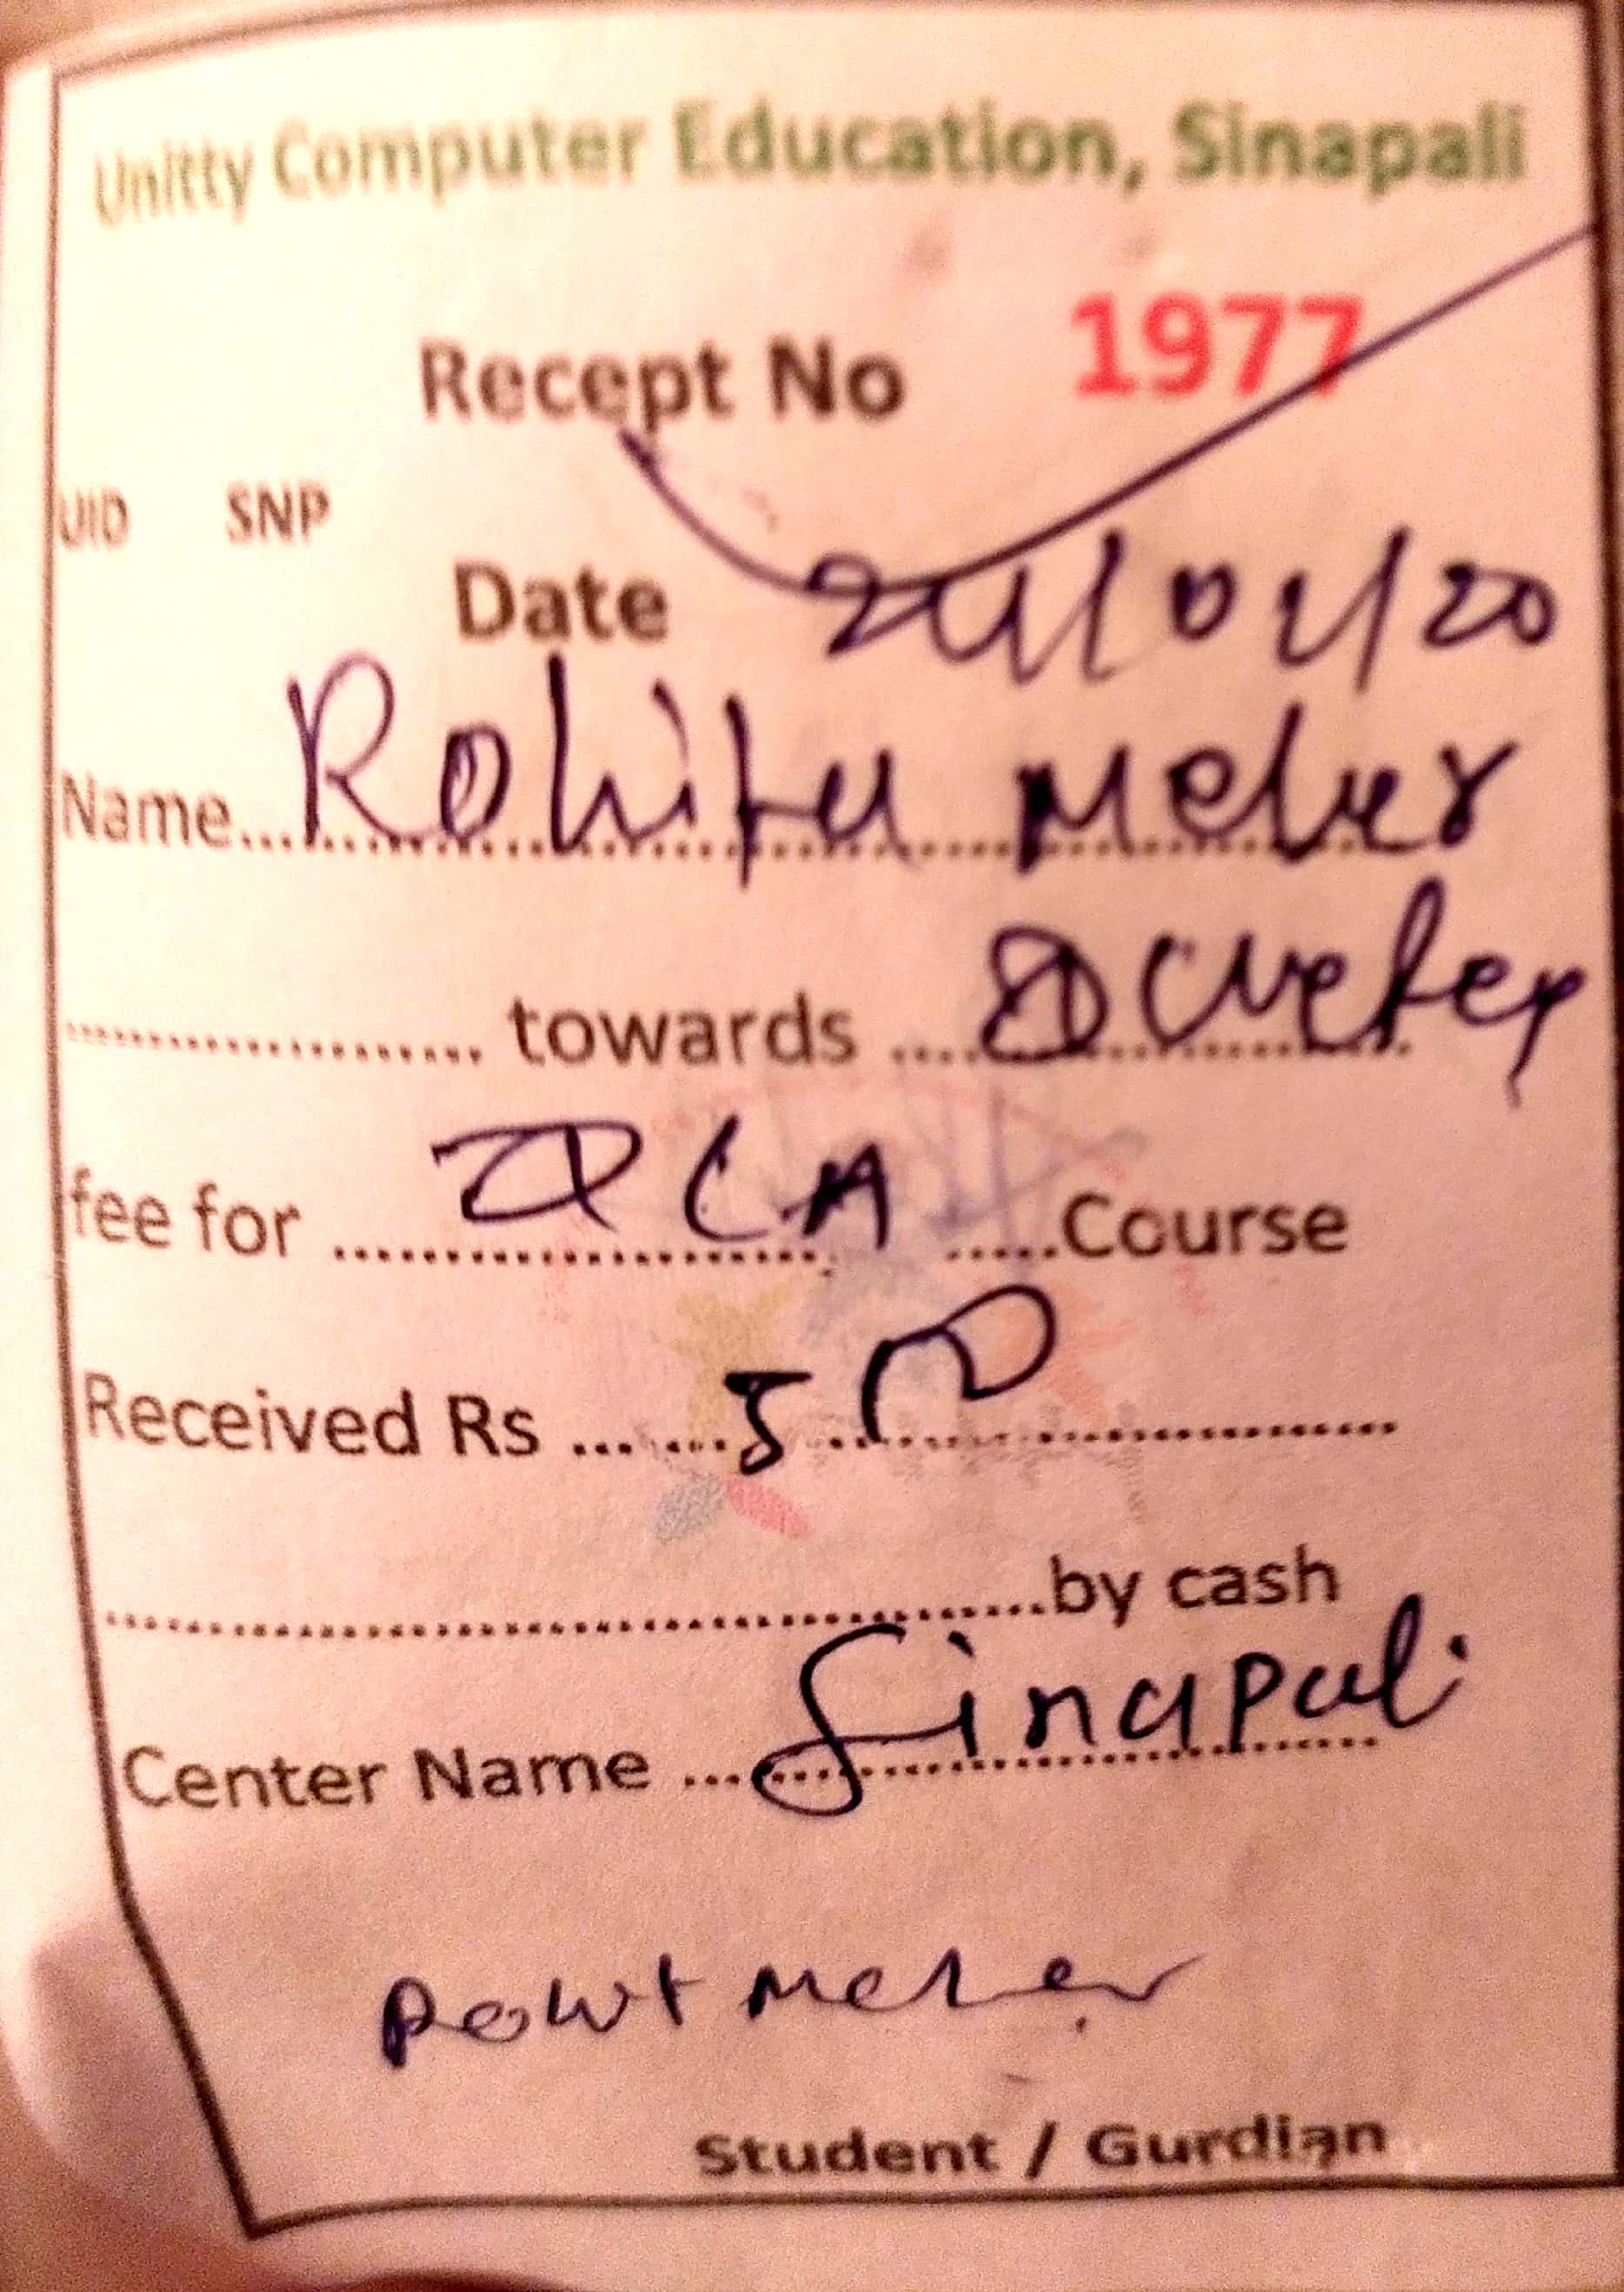 Unitty Computer Education, Sinapali
Recept No 1977
UID SNP
Date
Name... Meher
.................... towards ....
fee for ........ DCA .....Course
Received Rs ....... 500
........................by cash
Center Name ... Sinapali
Meher
Student / Gurdian